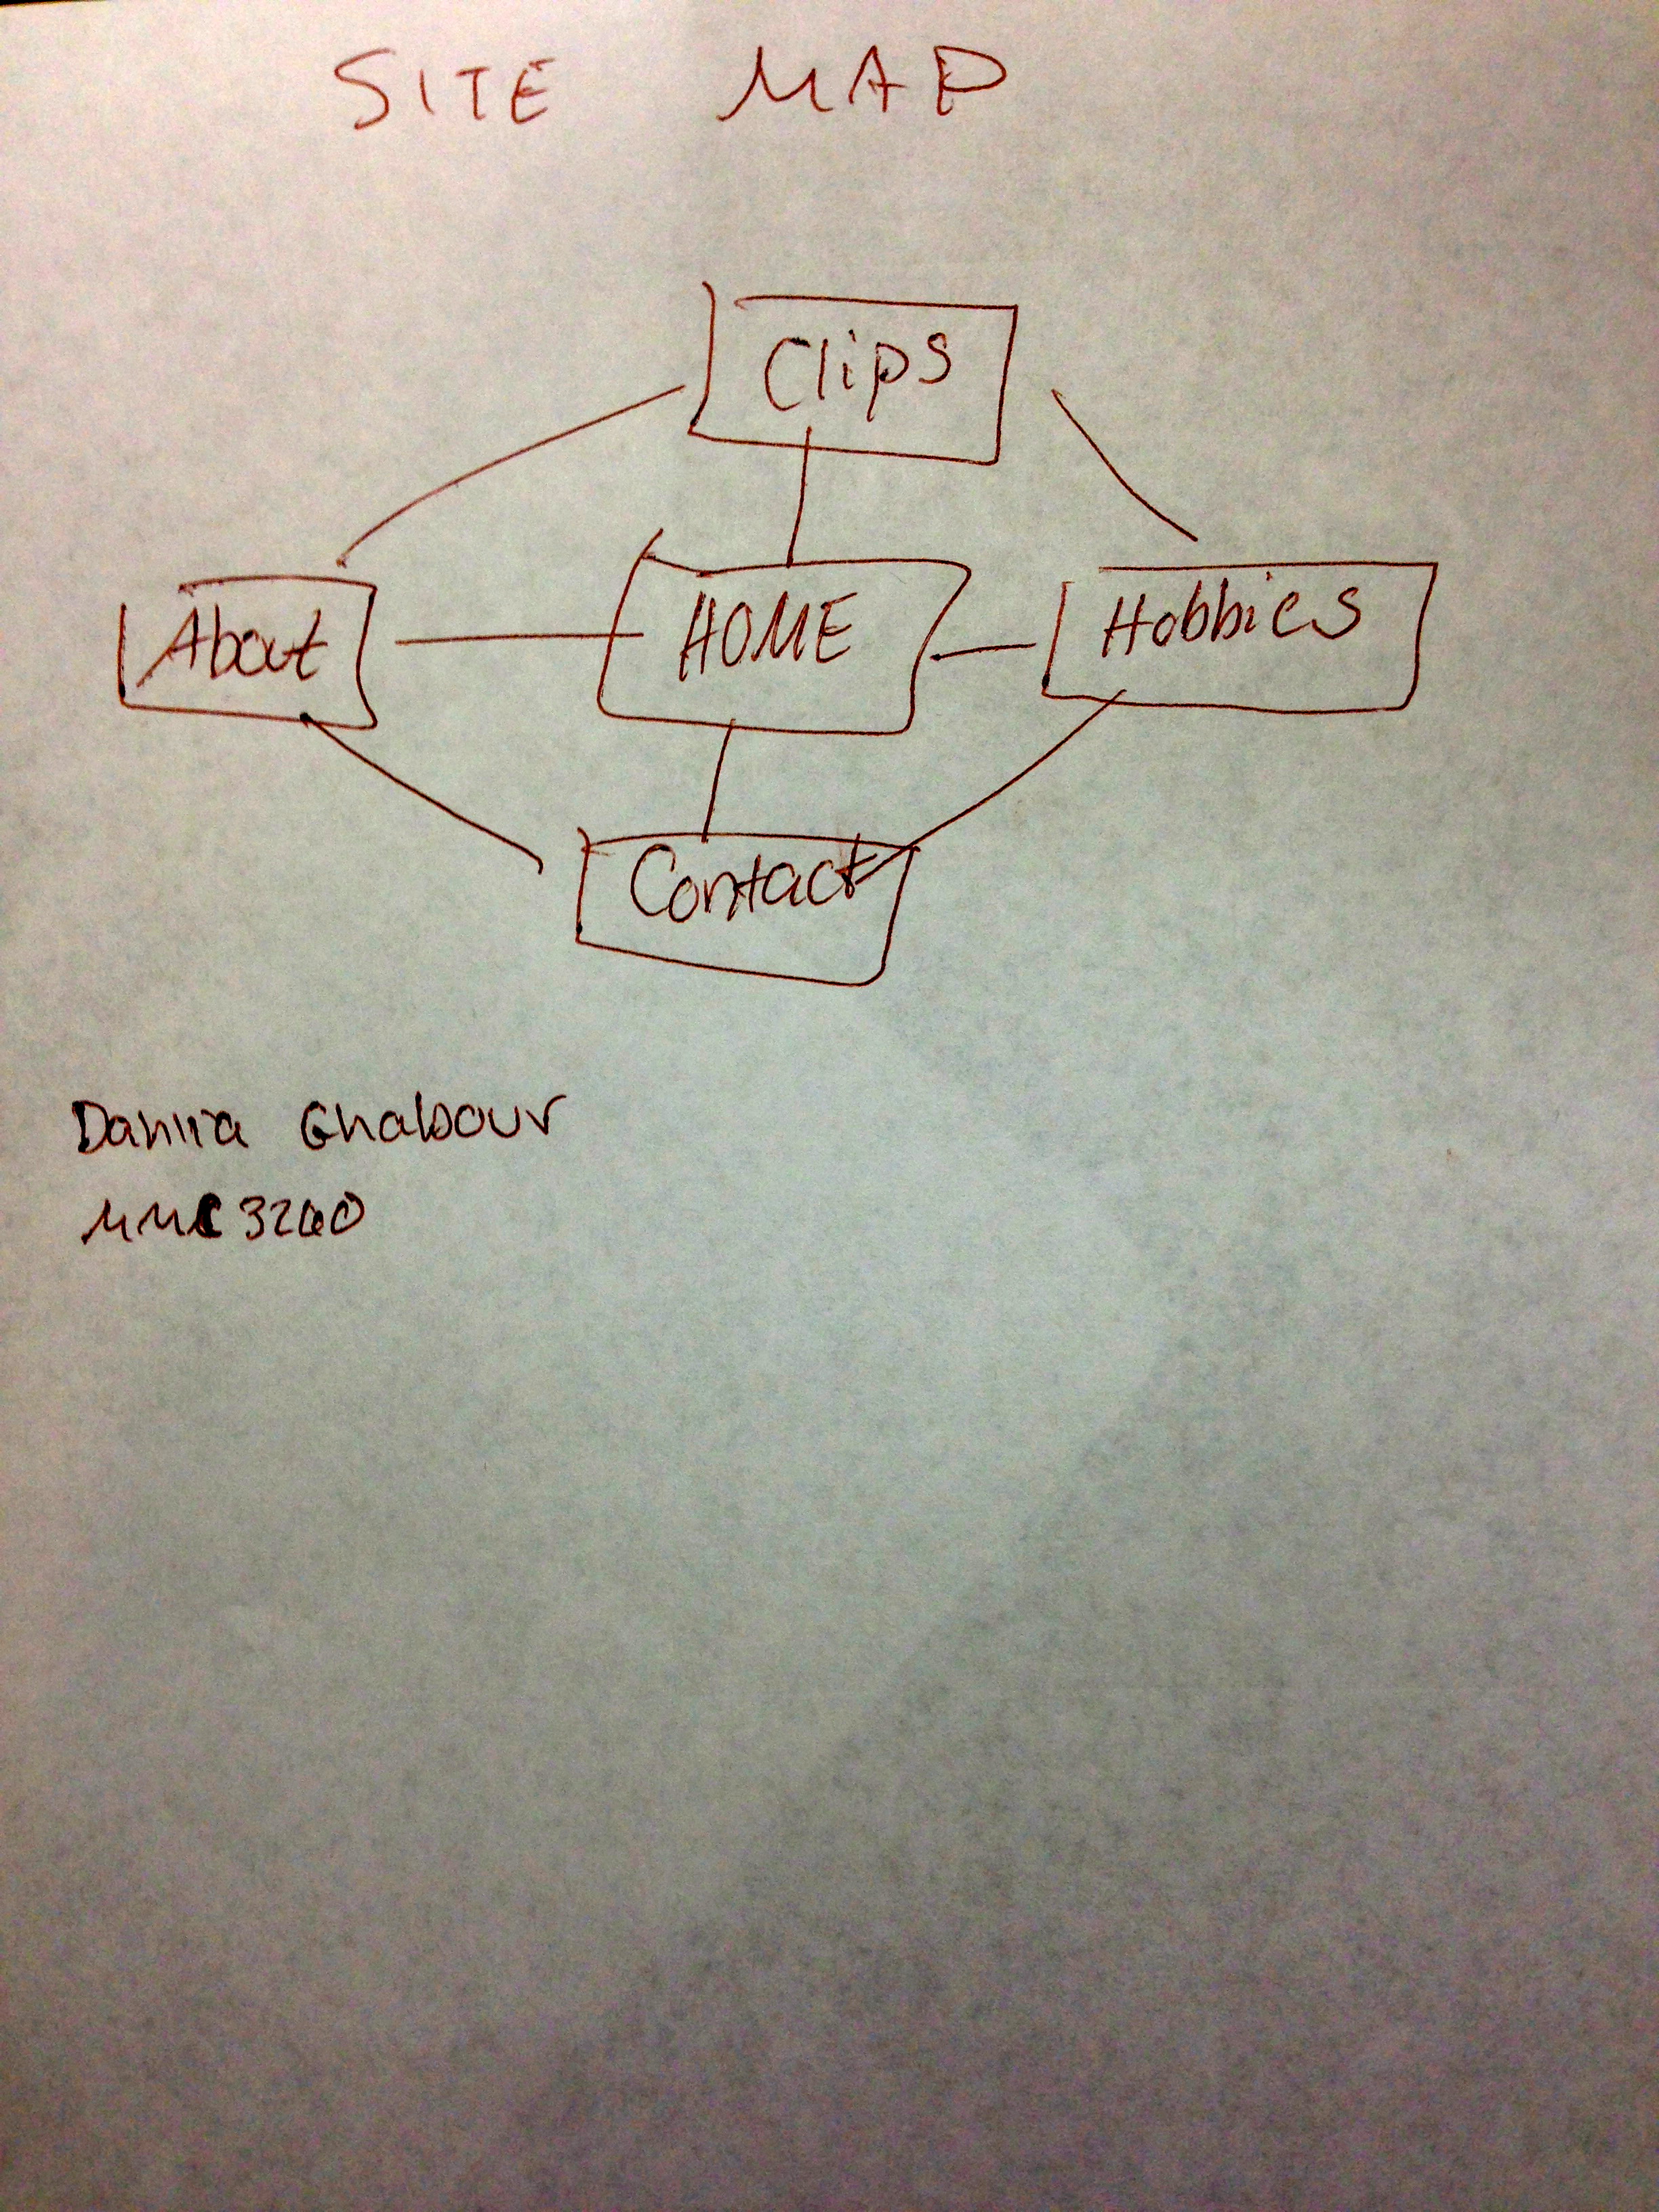 SITE MAP
Clips
About HOME Hobbies
Contact
Dahlia Ghabour
MMC 3260